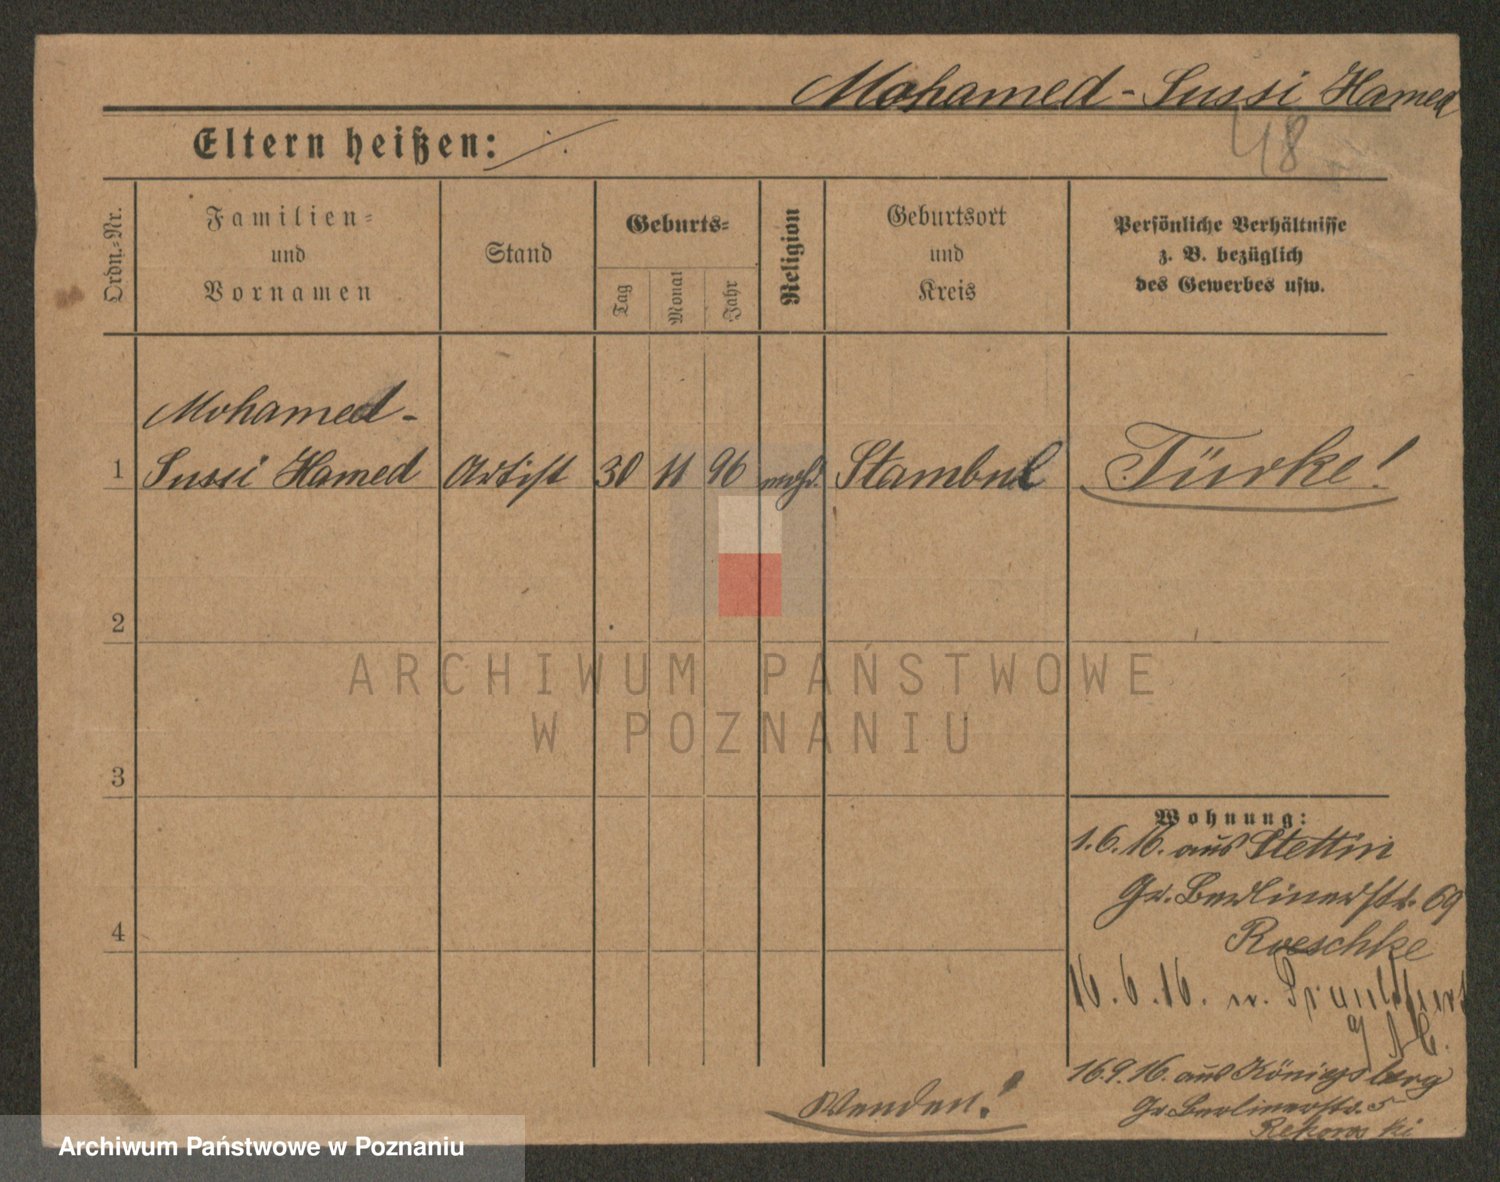 Mohamed-Sussi Hamed
48
Eltern heißen: ·/.
Ordn.-Nr.
Familien-
und
Vornamen
Stand
Geburts-
Tag
Monat
Jahr
Religion
Geburtsort
und
Kreis
Persönliche Verhältnisse
z. B. bezüglich
des Gewerbes usw.
Mohamed-
1 Sussi Hamed Artist 30 11 96 moh. Stambul Türke!
2
3
4
Wohnung:
1.6.16. aus Stettin
Gr. Berlinerstr. 69
Roeschke
16.6.16. n. Frankfurt
a/
16.9.16. aus Königsberg
Gr. Berlinerstr. 5
Wenden!
ARCHIWUM PAŃSTWOWE
W POZNANIU
Archiwum Państwowe w Poznaniu